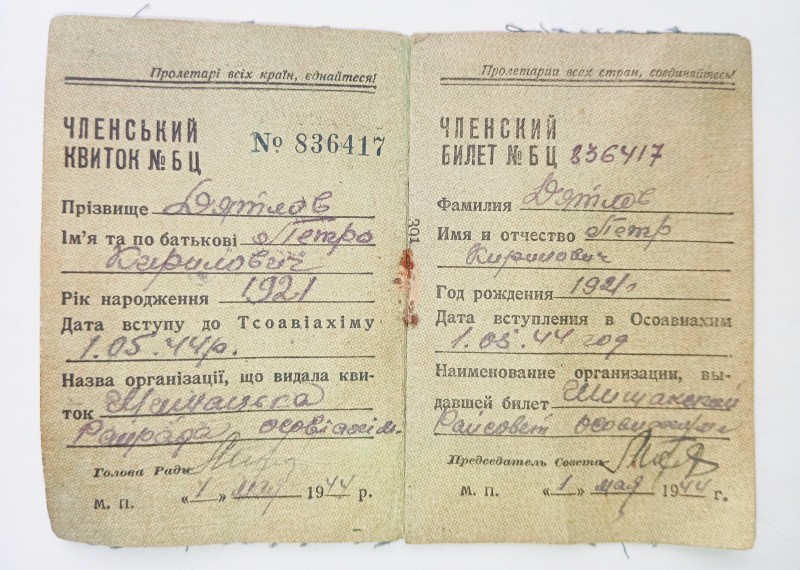 Пролетарі всіх країн, єднайтеся!
ЧЛЕНСЬКИЙ
КВИТОК № БЦ
№ 836417
Прізвище Дятлов
Ім'я та по батькові Петро
Кирилович
Рік народження 1921
Дата вступу до Тсоавіахіму
1.05.44 р.
Назва організації, що видала кви-
ток
Райрада осовіахім
Голова Ради
М. П. «1» 1944 р.
301
Пролетарии всех стран, соединяйтесь!
ЧЛЕНСКИЙ
БИЛЕТ № БЦ 836417
Фамилия Дятлов
Имя и отчество Петр
Кирилович
Год рождения 1921 г
Дата вступления в Осоавиахим
1.05.44 год
Наименование организации, вы-
давшей билет
Райсовет
Председатель Совета
М. П. «1» мая 1944 г.